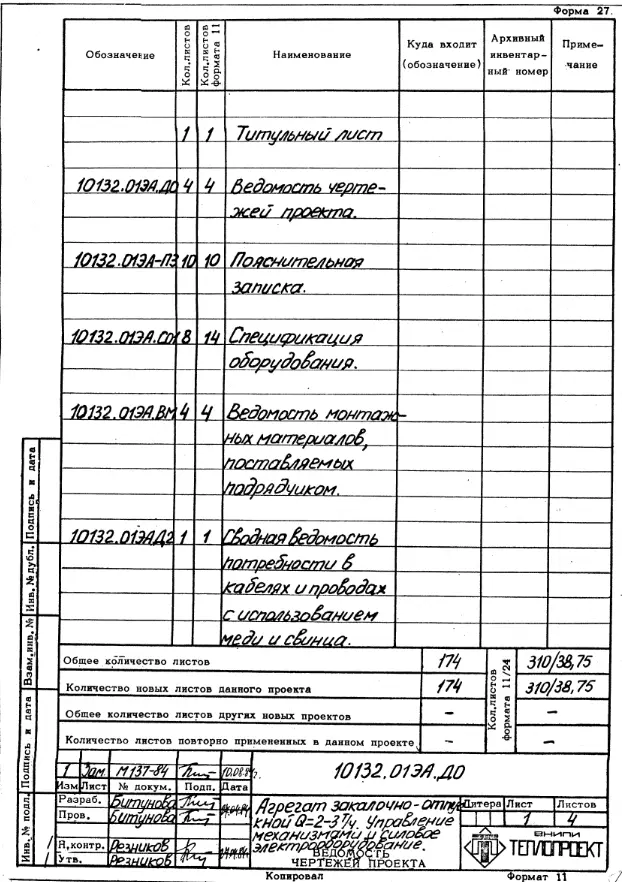 Форма 27.
Обозначение Кол.листов Кол.листов формата 11 Наименование Куда входит (обозначение) Архивный инвентар-ный номер Приме-чание
1 1 Титульный лист
10132.01ЭА.ДО 4 4 Ведомость черте-
жей проекта.
10132.01ЭА-ПЗ 10 10 Пояснительная
записка.
10132.01ЭА.СО1 8 14 Спецификация
оборудования.
10132.01ЭА.ВМ 4 4 Ведомость монтаж-
ных материалов,
поставляемых
подрядчиком.
10132.01ЭАД2 1 1 Сводная ведомость
потребности в
кабелях и проводах
с использованием
меди и свинца.
Общее количество листов 174 Кол.листов формата 11/24 310/38,75
Количество новых листов данного проекта 174 310/38,75
Общее количество листов других новых проектов – –
Количество листов повторно примененных в данном проекте – –
1 Зам М137-84 10.08.84г.
Изм Лист № докум. Подп. Дата
10132.01ЭА.ДО
Разраб. Битунова
Пров. Битунова
Н.контр. Резников
Утв. Резников
Агрегат закалочно-отпус
кной Q-2-3 т/ч. Управление
механизмами и силовое
электрооборудование.
ВЕДОМОСТЬ
ЧЕРТЕЖЕЙ ПРОЕКТА
Литера Лист Листов
1 4
ВНИПИ
ТЕПЛОПРОЕКТ
Инв.№ подл. Подпись и дата Взам.инв.№ Инв.№ дубл. Подпись и дата
Копировал Формат 11